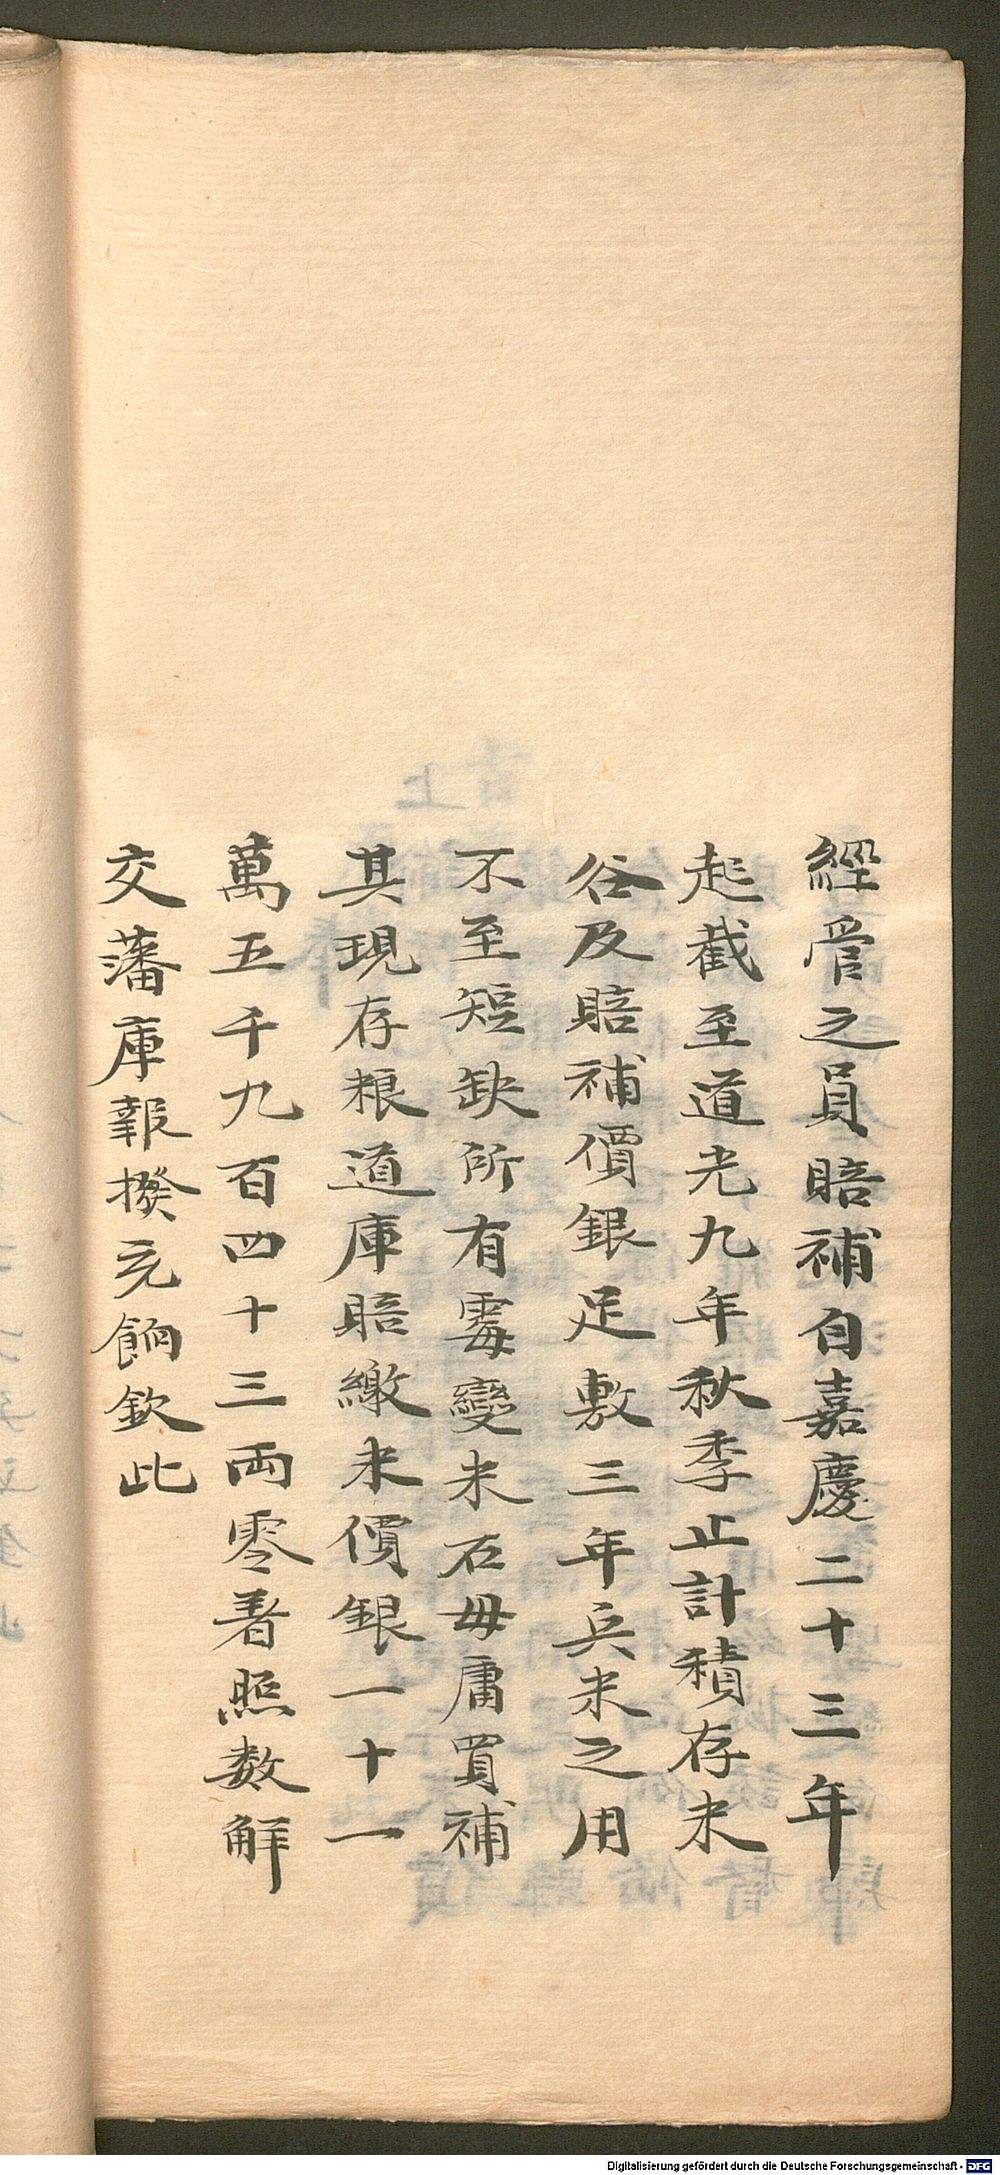 經管之員賠補自嘉慶二十三年
起截至道光九年秋季止計積存米
谷及賠補價銀足敷三年兵米之用
不至短缺所有霉變米石毋庸買補
其現存粮道庫賠繳米價銀一十一
萬五千九百四十三両零着照数解
交藩庫報撥充餉欽此
Digitalisierung gefördert durch die Deutsche Forschungsgemeinschaft - DFG